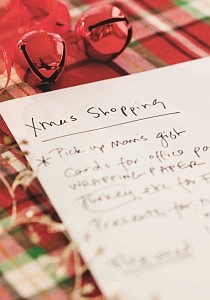 Xmas Shopping
* Pick up Mom's gift
Cards for office pa
WRAPPING PAPER
Turkey, etc for F
Presents for